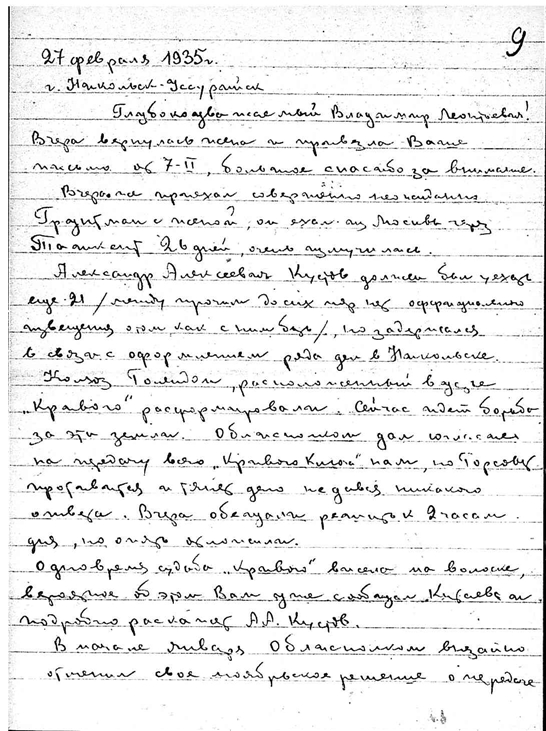 9
27 февраля 1935г.
г. Никольск-Уссурийск
Глубокоуважаемый Владимир Леонтьевич!
Вчера вернулась жена и привезла Ваше
письмо от 7-II, большое спасибо за внимание.
Вчера же приехал совершенно неожиданно
Траутман с женой, он ехал из Москвы через
Ташкент 26 дней, очень измучились.
Александр Алексеевич Кустов должен был уехать
еще 21 /между прочим до сих пор нет официального
извещения о том, как с ним быть/, но задержался
в связи с оформлением ряда дел в Никольске.
Колхоз расположенный в устье
„Кривого" расформировали. Сейчас идет борьба
за эти земли. Облисполком дал согласие
на передачу всего „Кривого Ключа" нам, но Горсовет
противится и тянет дело не давая никакого
ответа. Вчера обещали решить к 2 часам
дня, но опять отложили.
Одно время судьба „Кривого" висела на волоске,
вероятно об этом Вам уже сообщал и
подробно расскажет А.А. Кустов.
В начале января Облисполком внезапно
отменил свое ноябрьское решение о передаче